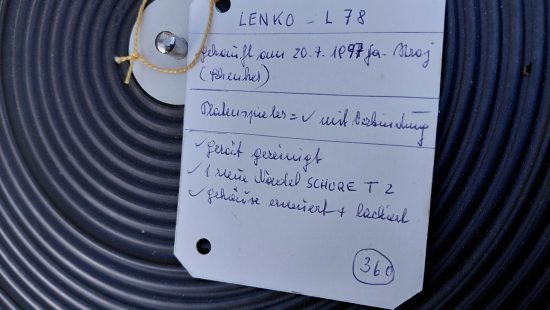 LENKO - L 78
gekauft am 20.7.1997 fa.
Plattenspieler = ✓ mit
✓ gerät gereinigt
✓ 1 neue Nadel SCHURE T 2
✓ gehäuse erneuert + lackiert
360